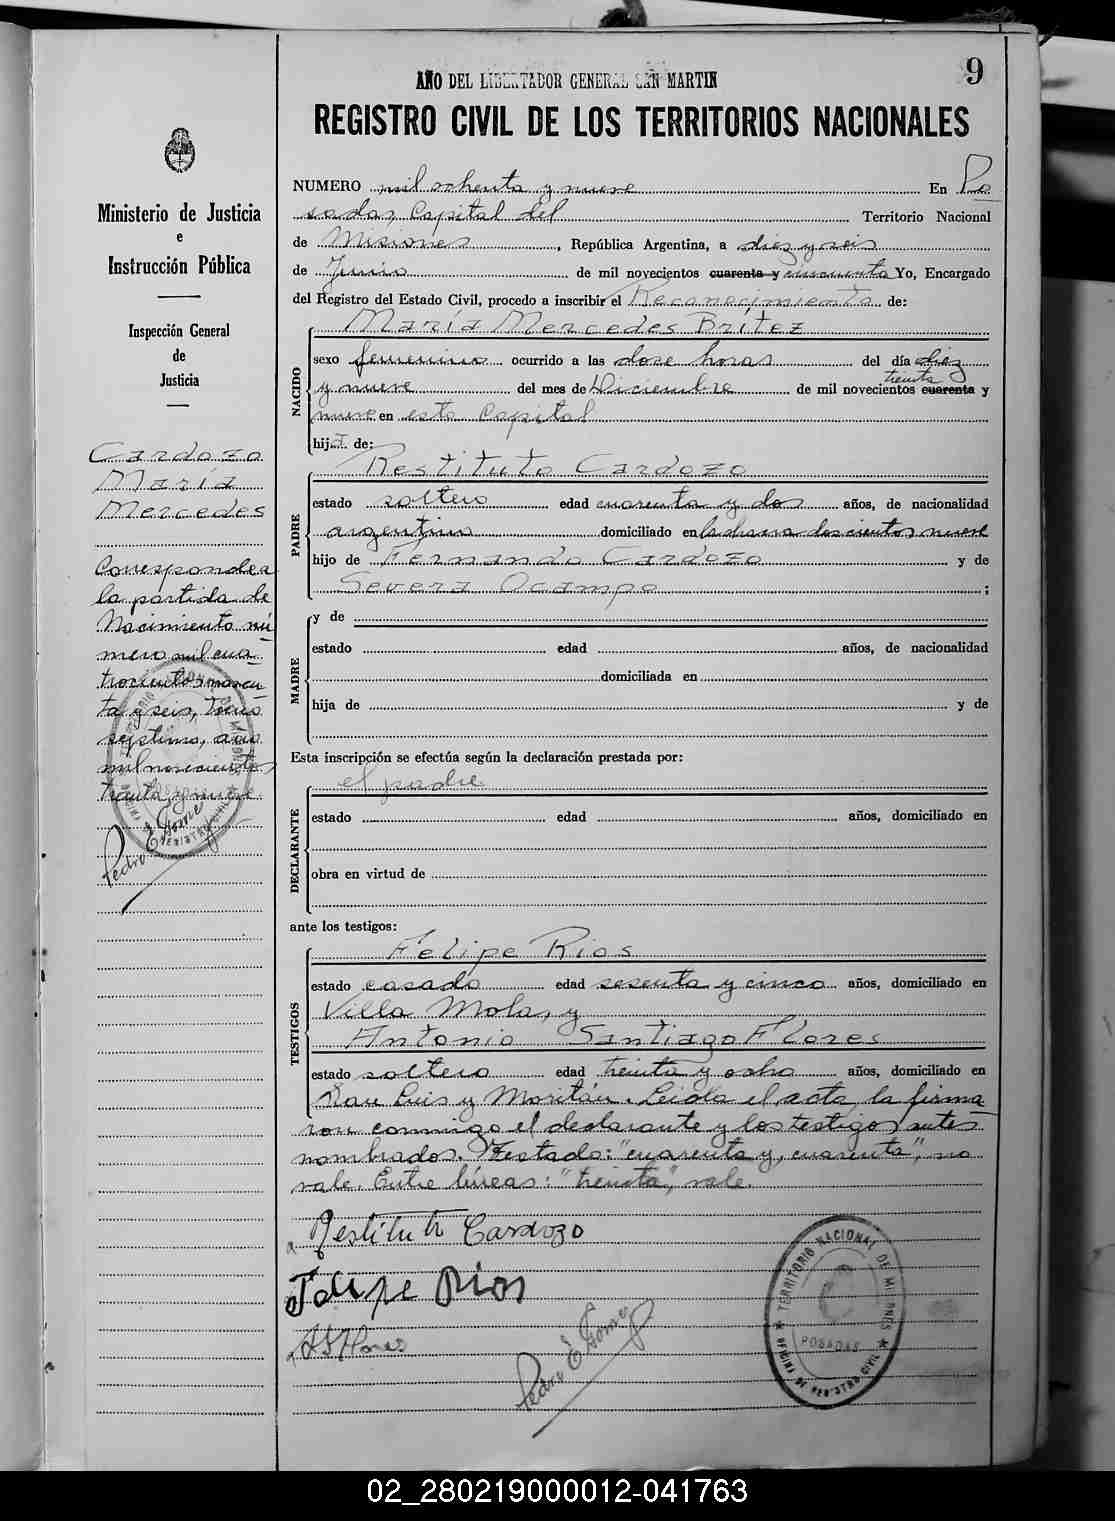 9
AÑO DEL LIBERTADOR GENERAL SAN MARTIN
REGISTRO CIVIL DE LOS TERRITORIOS NACIONALES
Ministerio de Justicia
e
Instrucción Pública
Inspección General
de
Justicia
Cardozo
María
Mercedes
Corresponde a
la partida de
Nacimiento nú-
mero mil cua-
trocientos noven-
ta y seis, Tomo
septimo, año
mil novecientos
treinta y nueve
Pedro E Gome
NUMERO mil ochenta y nueve En Po
sadas, Capital del Territorio Nacional
de Misiones, República Argentina, a diez y seis
de Junio de mil novecientos cuarenta y cincuenta Yo, Encargado
del Registro del Estado Civil, procedo a inscribir el Reconocimiento de:
NACIDO
María Mercedes Brítez
sexo femenino ocurrido a las doce horas del día diez
treinta
y nueve del mes de Diciembre de mil novecientos cuarenta y
nueve en esta Capital
hija de:
PADRE
Restituto Cardozo
estado soltero edad cuarenta y dos años, de nacionalidad
argentino domiciliado en la chacra doscientos nueve
hijo de Fernando Cardozo y de
Severa Ocampo ;
MADRE
y de
estado edad años, de nacionalidad
domiciliada en
hija de y de
Esta inscripción se efectúa según la declaración prestada por:
el padre
DECLARANTE
estado edad años, domiciliado en
obra en virtud de
ante los testigos:
TESTIGOS
Felipe Rios
estado casado edad sesenta y cinco años, domiciliado en
Villa Mola, y
Antonio Santiago Flores
estado soltero edad treinta y ocho años, domiciliado en
San Luis y Moritán. Leída el acta, la firma
ron conmigo el declarante y los testigos antes
nombrados. Testado: "cuarenta y, cuarenta", no
vale. Entre líneas: "treinta", vale.
Restituto Cardozo
Felipe Rios
A S Flores
Pedro E Gome
TERRITORIO NACIONAL DE MISIONES
POSADAS
OFICINA DE REGISTRO CIVIL
02_280219000012-041763